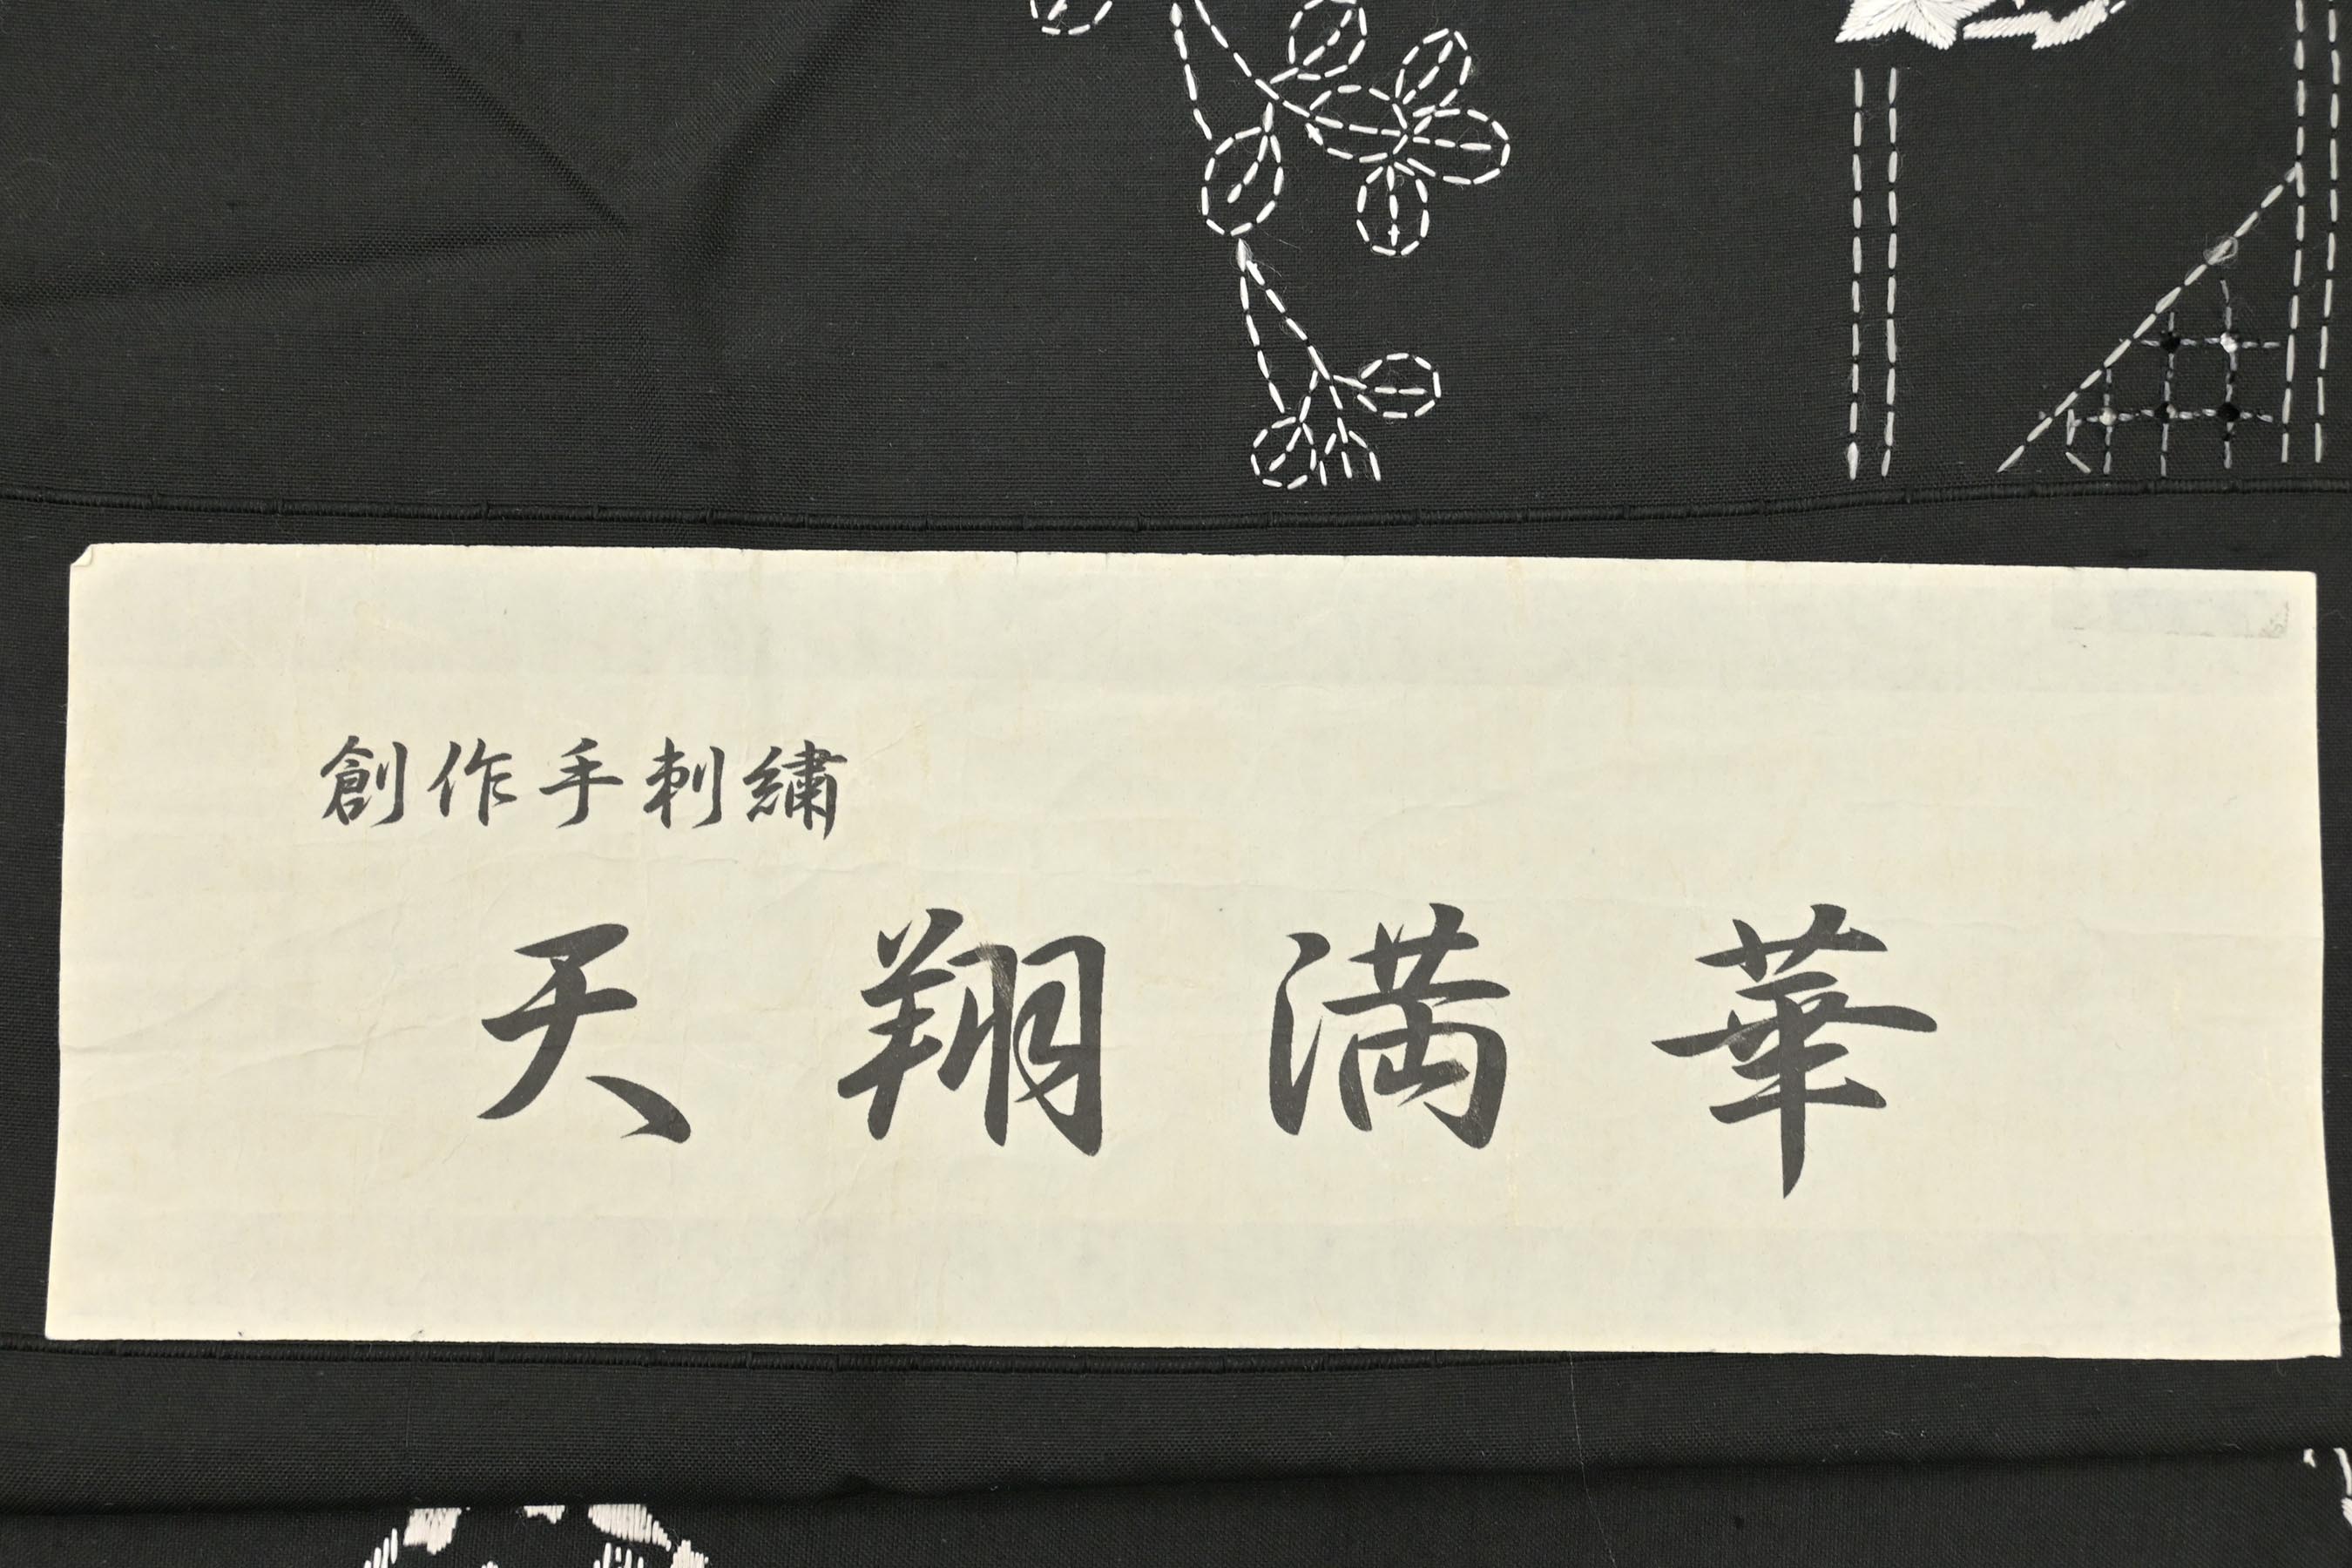 創作手刺繍
天翔満華